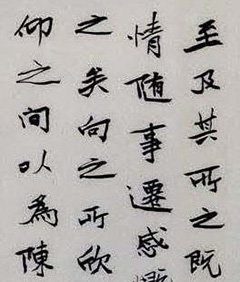 至及其所之既
情随事遷感慨
之矣向之所欣
仰之間以為陳